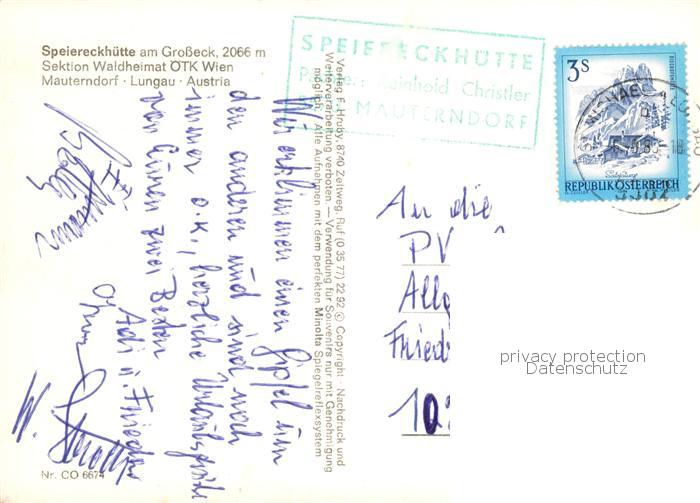 Speiereckhütte am Großeck, 2066 m
Sektion Waldheimat ÖTK Wien
Mauterndorf · Lungau · Austria
SPEIERECKHÜTTE
Reinhold Christler
MAUTERNDORF
3s
REPUBLIK ÖSTERREICH
Verlag F. Hruby, 8740 Zeltweg, Ruf (0 35 77) 22 92 © Copyright · Nachdruck und
Weiterverarbeitung verboten. — Verwendung für Souvenirs nur mit Genehmigung
möglich. Alle Aufnahmen mit dem perfekten Minolta Spiegelreflexsystem
Wir erklimmen einen Gipfel um
den anderen und sind noch
immer o.k., herzliche Urlaubsgrüße
von Euren zwei Besten
Adi u. Frieder
An die
PV
Allg
Fried
10
privacy protection
Datenschutz
Nr. CO 6674